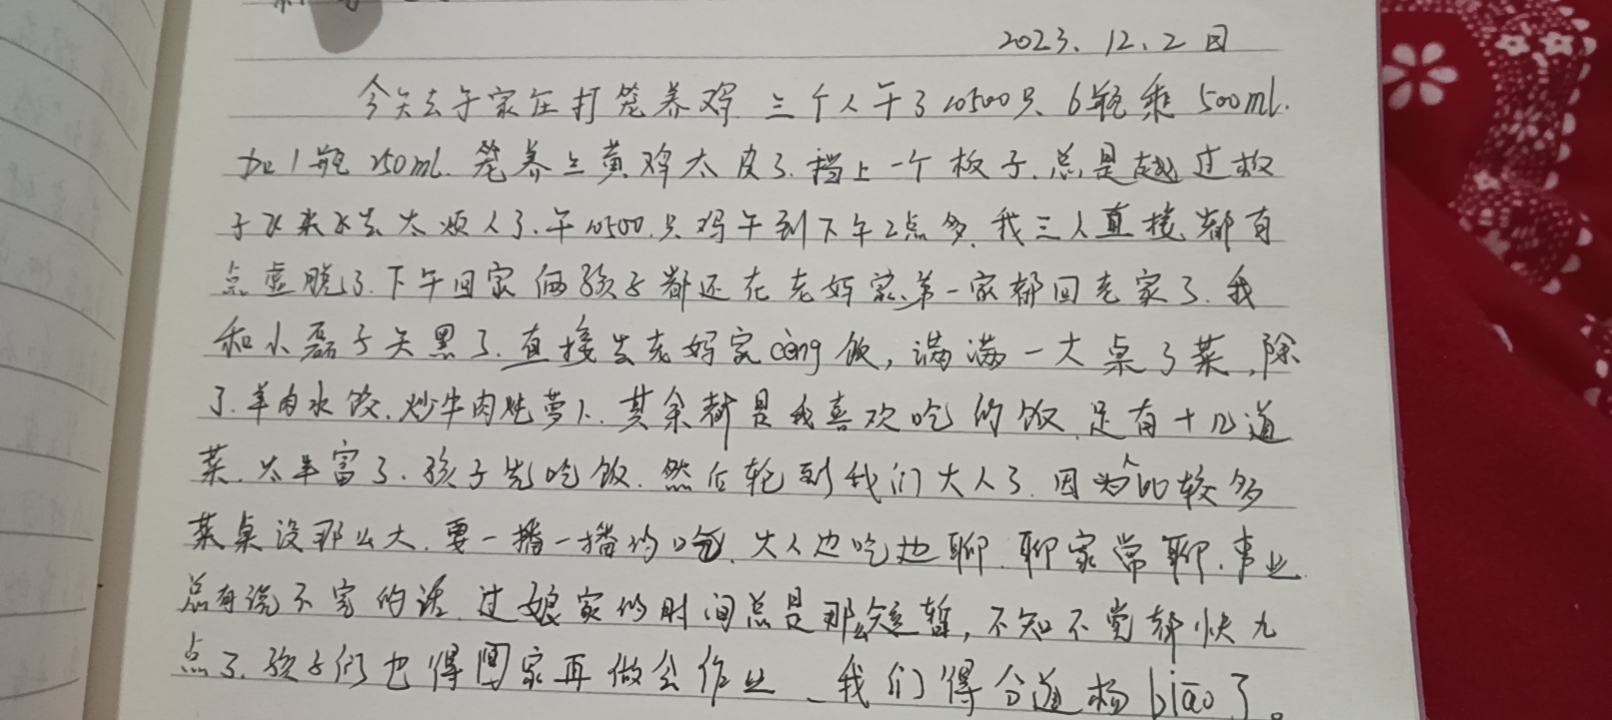 2023.12.2日
今天去于家庄打笼养鸡 三个人干了10500只、6瓶乘500ml.
加1瓶250ml.笼养三黄鸡太皮了.挡上一个板子.总是越过板
子飞来飞去太烦人了.午10500.只鸡干到下午2点多、我三人直接都有
点虚脱了.下午回家俩孩子都还在老妈家、弟一家都回老家了.我
和小磊子天黑了.直接去老妈家cèng饭,满满一大桌子菜,除
了.羊肉水饺.炒牛肉炖萝卜.其余都是我喜欢吃的饭.足有十几道
菜.太丰富了.孩子先吃饭.然后轮到我们大人了.因为人比较多
菜桌没那么大.要一播一播的吃.大人边吃边聊.聊家常聊.事业.
总有说不完的话.过娘家的时间总是那么短暂,不知不觉都快九
点了.孩子们也得回家再做会作业、我们得分道杨biāo了。